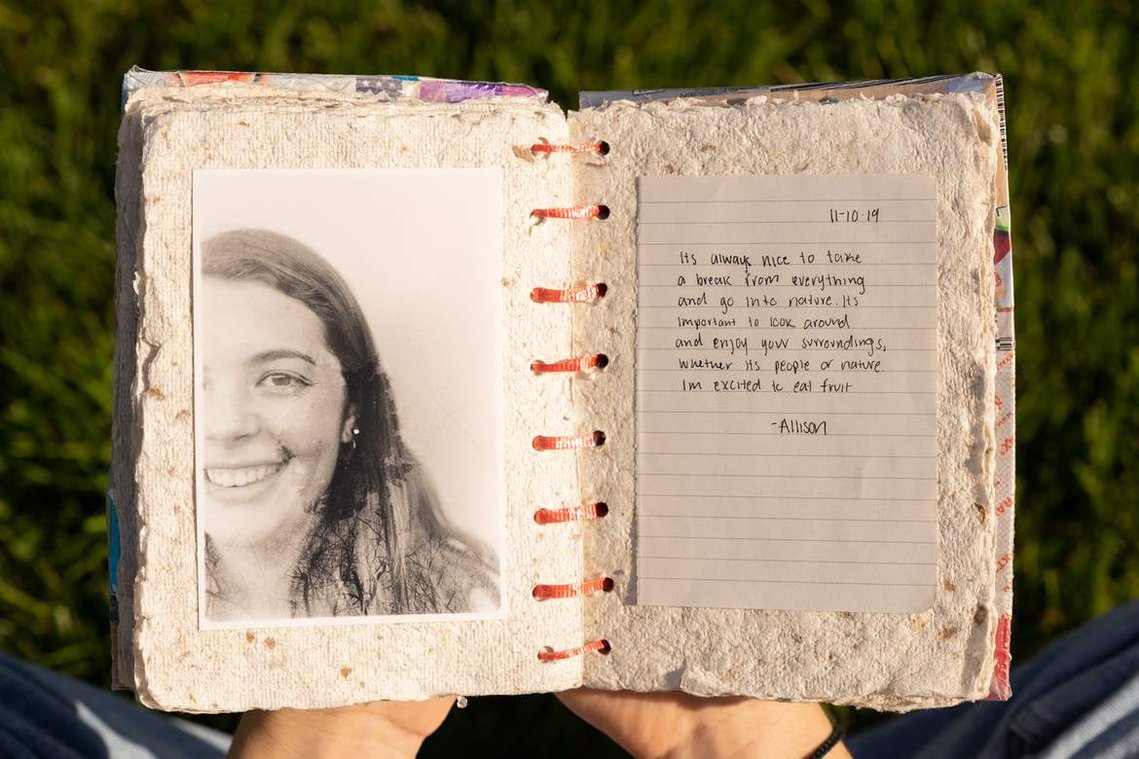 11-10-19
Its always nice to take
a break from everything
and go into nature. Its
important to look around
and enjoy your surroundings,
whether its people or nature
Im excited to eat fruit
-Allison